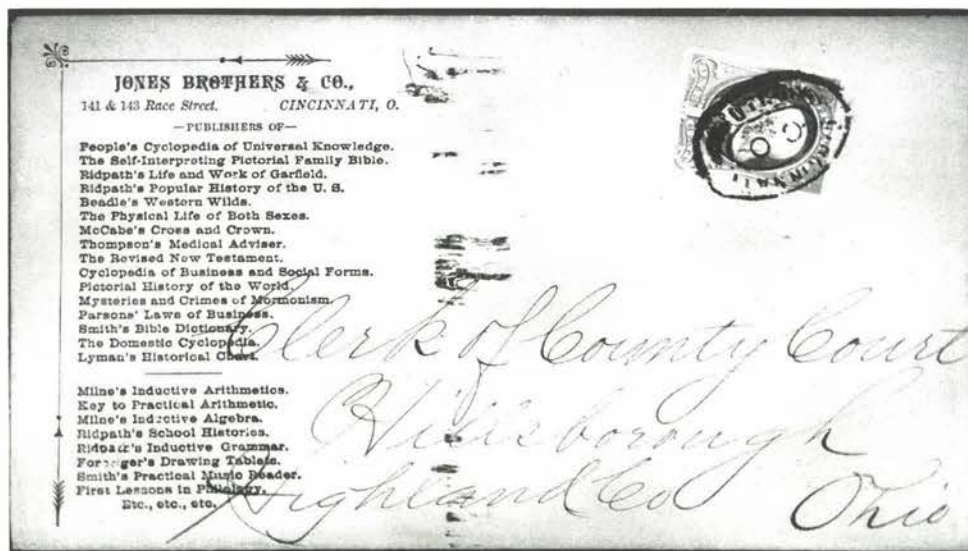 JONES BROTHERS & CO.,
141 & 143 Race Street. CINCINNATI, O.
—PUBLISHERS OF—
People's Cyclopedia of Universal Knowledge.
The Self-Interpreting Pictorial Family Bible.
Ridpath's Life and Work of Garfield.
Ridpath's Popular History of the U. S.
Beadle's Western Wilds.
The Physical Life of Both Sexes.
McCabe's Cross and Crown.
Thompson's Medical Adviser.
The Revised New Testament.
Cyclopedia of Business and Social Forms.
Pictorial History of the World.
Mysteries and Crimes of Mormonism.
Parsons' Laws of Business.
Smith's Bible Dictionary.
The Domestic Cyclopedia.
Lyman's Historical Chart.
Milne's Inductive Arithmetics.
Key to Practical Arithmetic.
Milne's Inductive Algebra.
Ridpath's School Histories.
Ridpath's Inductive Grammar.
Drawing Tablets.
Smith's Practical Music Reader.
First Lessons in Philology.
Etc., etc., etc.
Clerk of County Court
Hillsborough
Highland Co Ohio